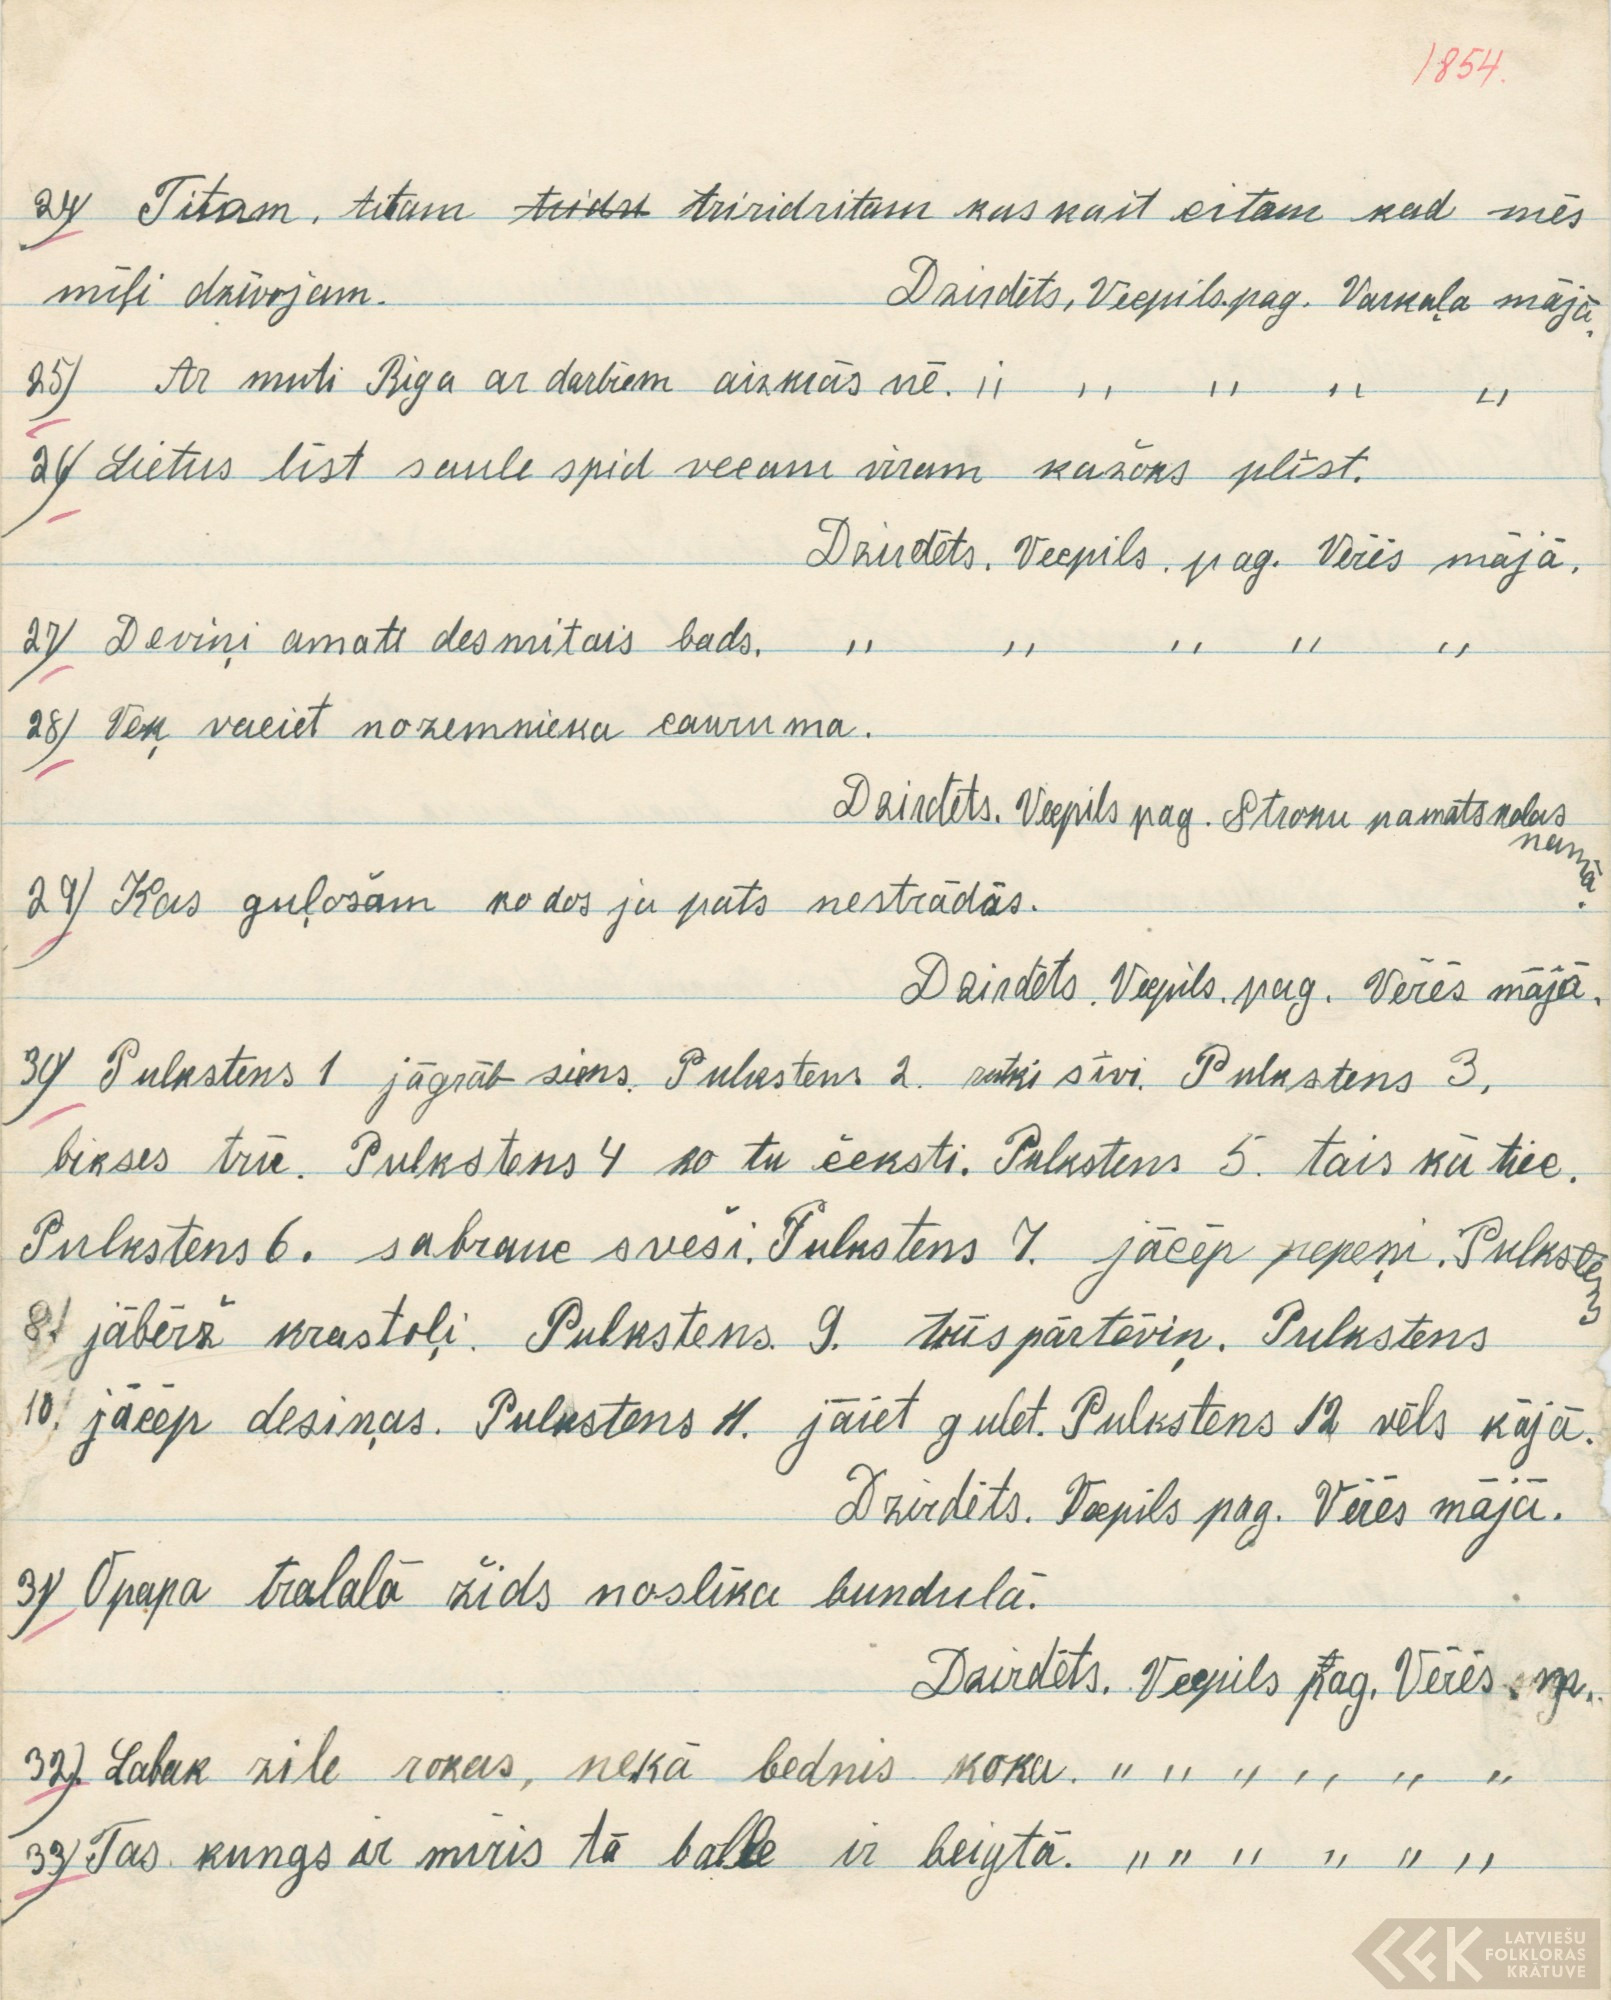 1854.
24) Titam, titam tridri triridritam kas kait citam kad mēs
mīļi dzīvojam. Dzirdēts, Vecpils. pag. Varkaļa mājā.
25) Ar muti Rīga ar darbiem aizkrās nē. " " " " "
26) Lietus līst saule spīd vecam vīram kažoks plīst.
Dzirdēts. Vecpils. pag. Vērēs mājā.
27) Deviņi amati desmitais bads. " " " " "
28) Vēķ vaciet no zemnieka cauruma.
Dzirdēts. Vecpils pag. Stroku pamatskolas
namā.
29) Kas guļošam ko dos ja pats nestrādās.
Dzirdēts. Vecpils. pag. Vērēs mājā.
30) Pulkstens 1 jāgrāb siens. Pulkstens 2. rutki sīvi. Pulkstens 3,
bikses trīc. Pulkstens 4 ko tu čeksti. Pulkstens 5. tais kū tiec.
Pulkstens 6. sabrauc sveši. Pulkstens 7. jācēp pepeņi. Pulkstens
8. jābērž krastoļi. Pulkstens. 9. tūs pārtēviņ. Pulkstens
10. jācēp desiņas. Pulkstens 11. jāiet gulet. Pulkstens 12 vēls kājā.
Dzirdēts. Vecpils pag. Vērēs mājā.
31) Opapa tralalā žīds noslīka bundulā.
Dzirdēts. Vecpils pag. Vērēs. m.
32). Labak zīle rokas, nekā bednis koka. " " " " " "
33) Tas kungs ir miris tā balle ir beigtā. " " " " " "
LATVIEŠU
FOLKLORAS
KRĀTUVE